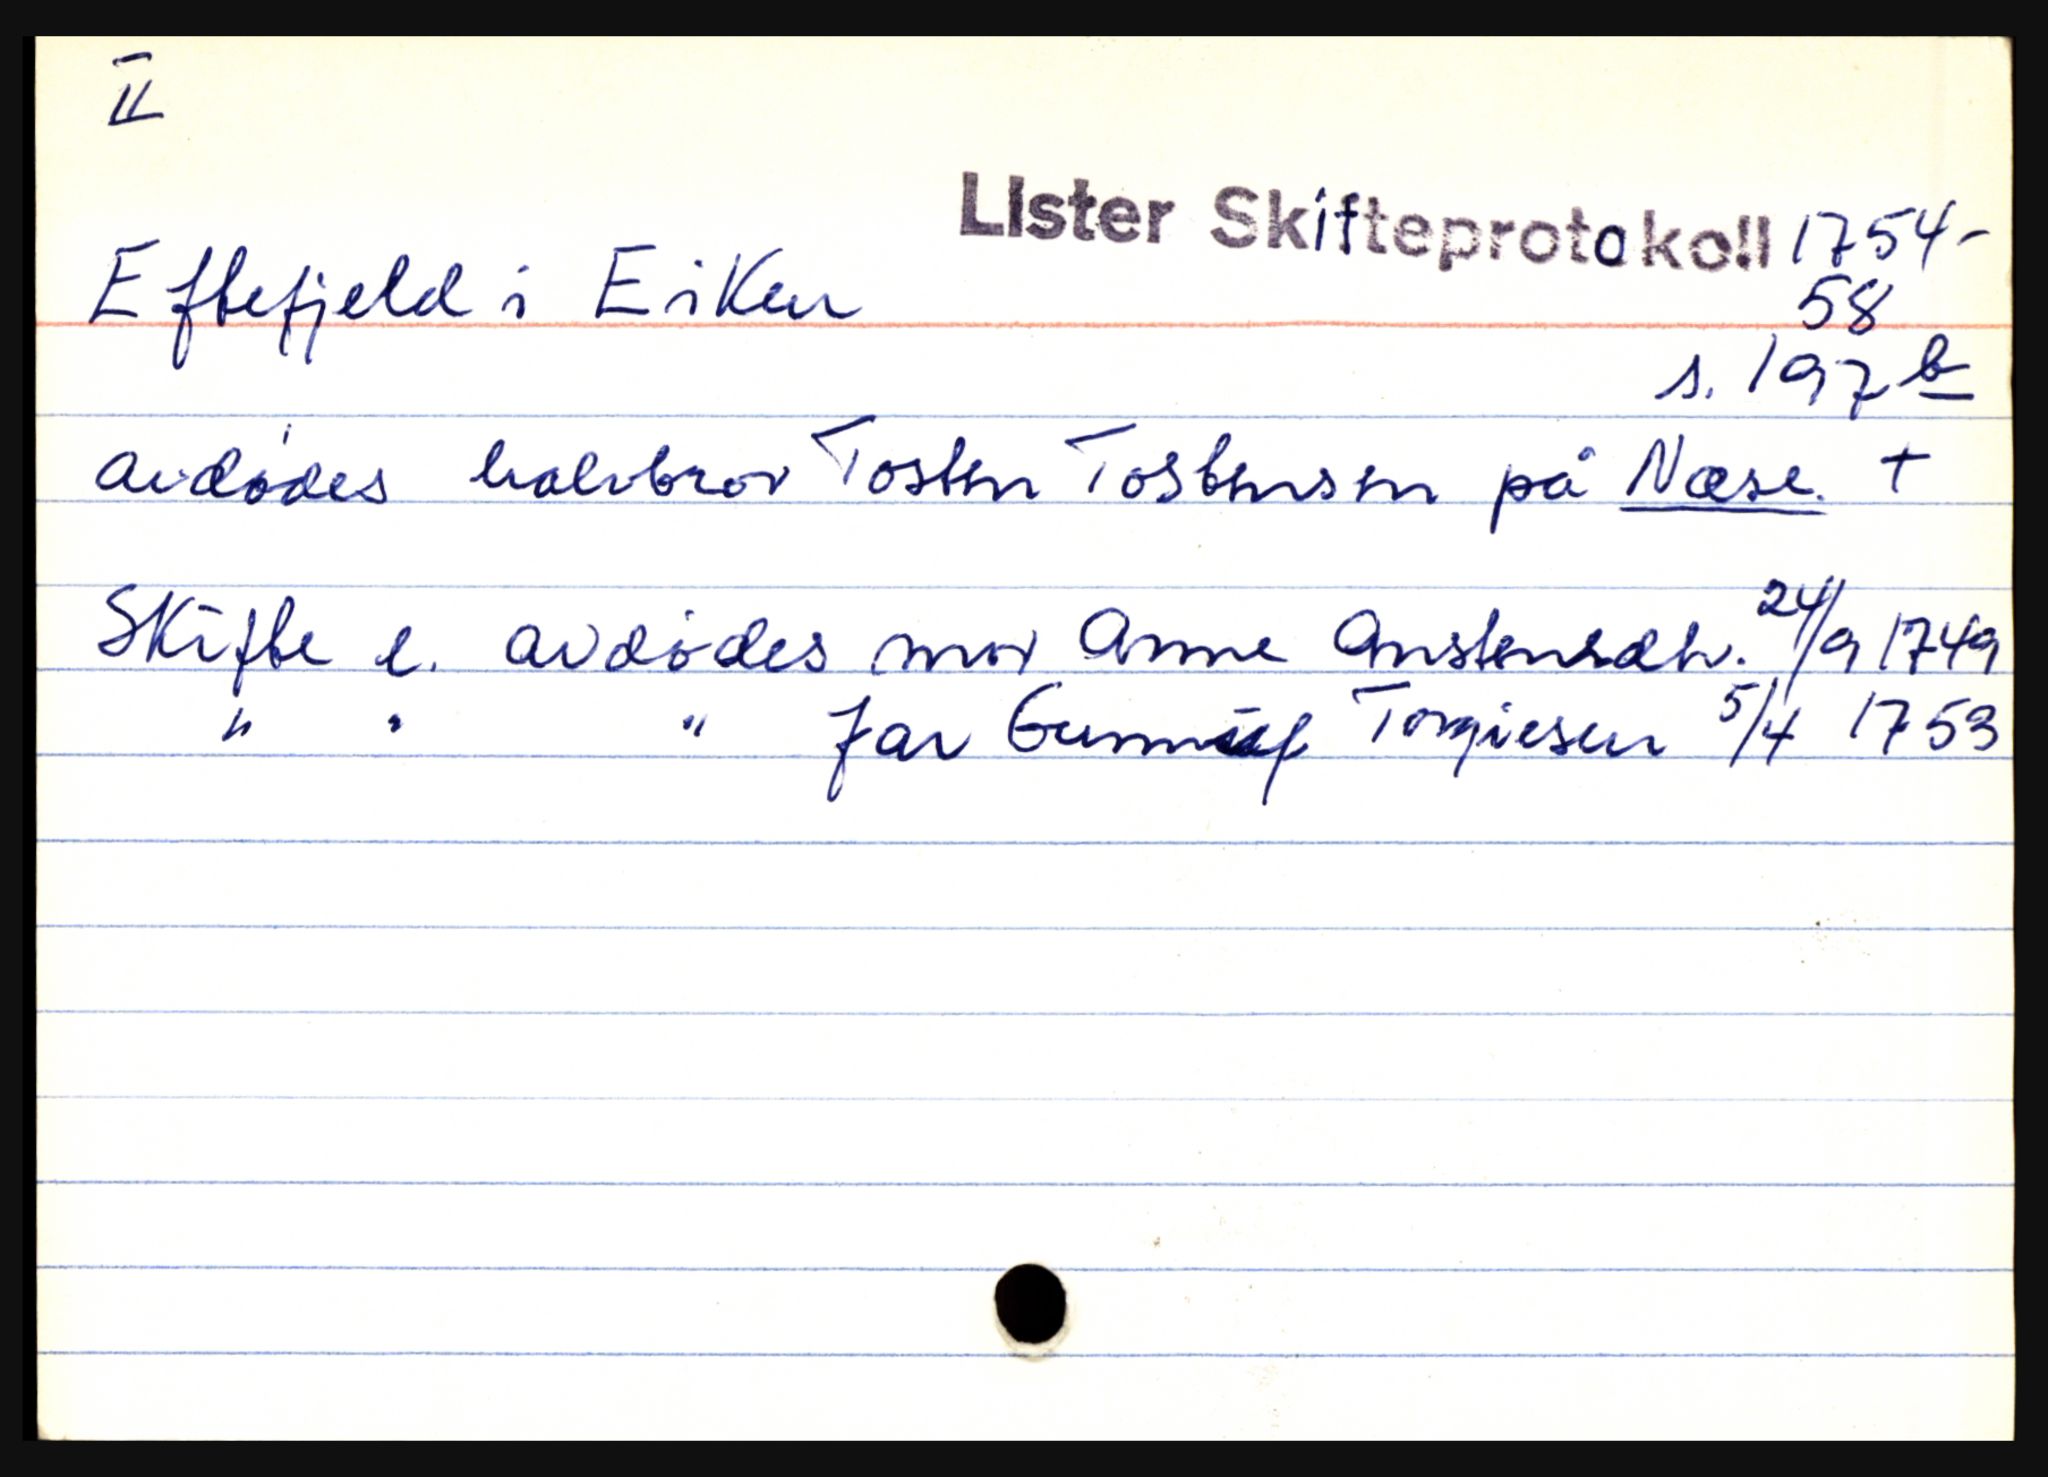 II
Lister Skifteprotokoll 1754-
Eftefjeld i Eiken 58
s. 197b
avdødes halvbror Tosten Tostensen på Næse. +
Skifte e. avdødes mor Anne Anstensdtr. 24/9 1749
" " " far Gunnulf Torgiesen 5/4 1753